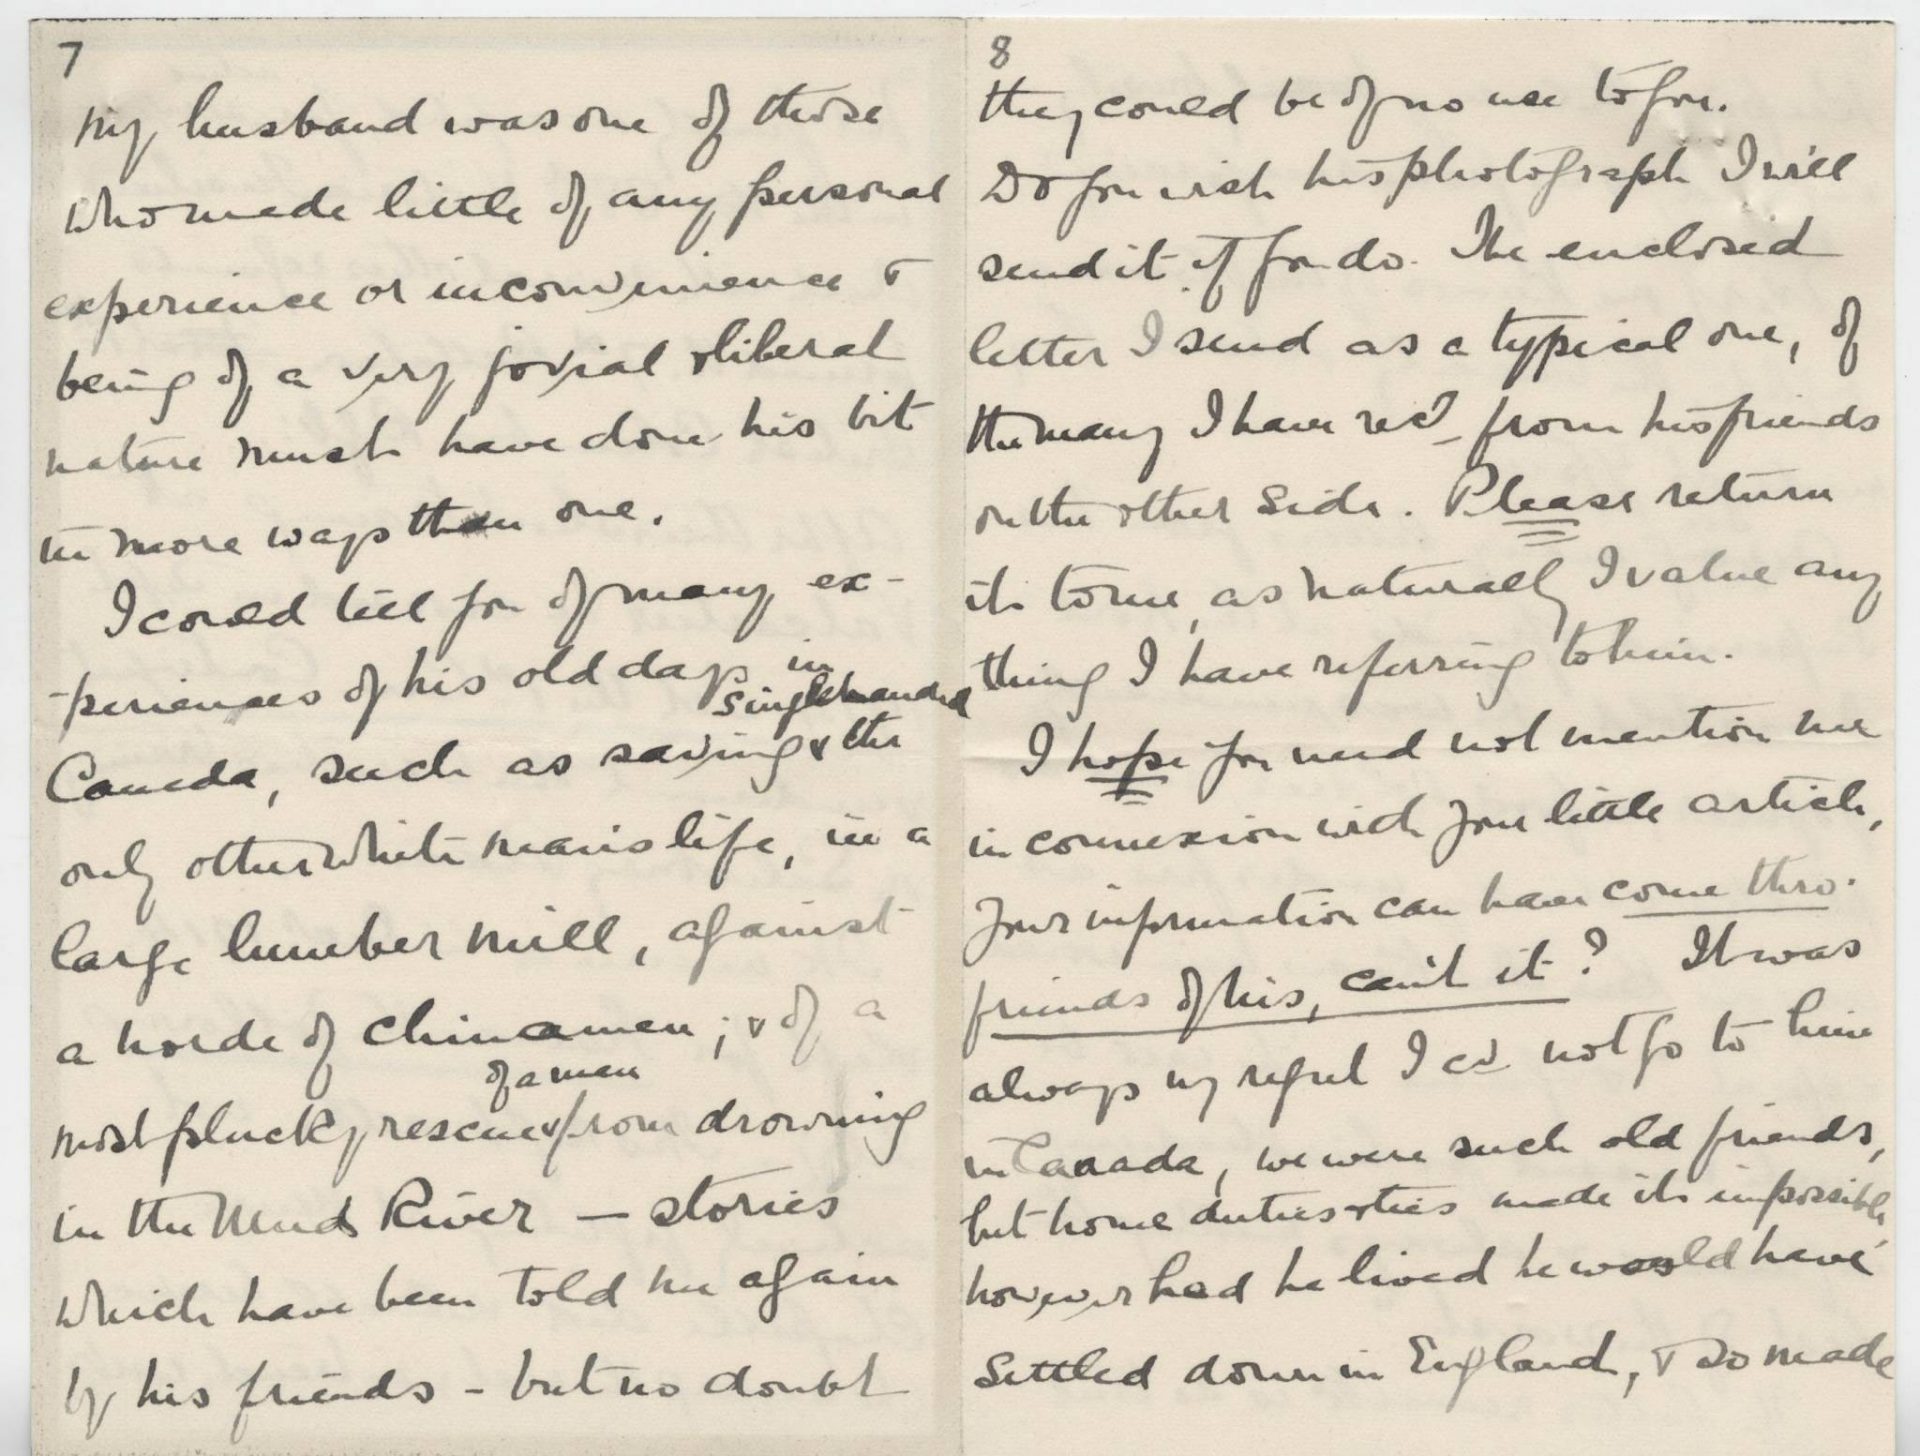 7
My husband was one of those
who made little of any personal
experience or inconvenience &
being of a very jovial & liberal
nature must have done his bit
in more ways than one.
I could tell you of many ex-
-periences of his old days in
Canada, such as saving singlehanded & the
only other white man's life, in a
large lumber mill, against
a horde of Chinamen; & of a
most plucky rescue of a man from drowning
in the Mud River – stories
which have been told me again
by his friends – but no doubt
8
they could be of no use to you.
Do you wish his photograph I will
send it if you do. The enclosed
letter I send as a typical one, of
the many I have recd from his friends
on the other side. Please return
it to me, as naturally I value any
thing I have referring to him.
I hope you need not mention me
in connexion with your little article,
your information can have come thro'
friends of his, can't it? It was
always my regret I cd not go to him
in Canada, we were such old friends,
but home duties & ties made it impossible
however had he lived he would have
settled down in England, & so made